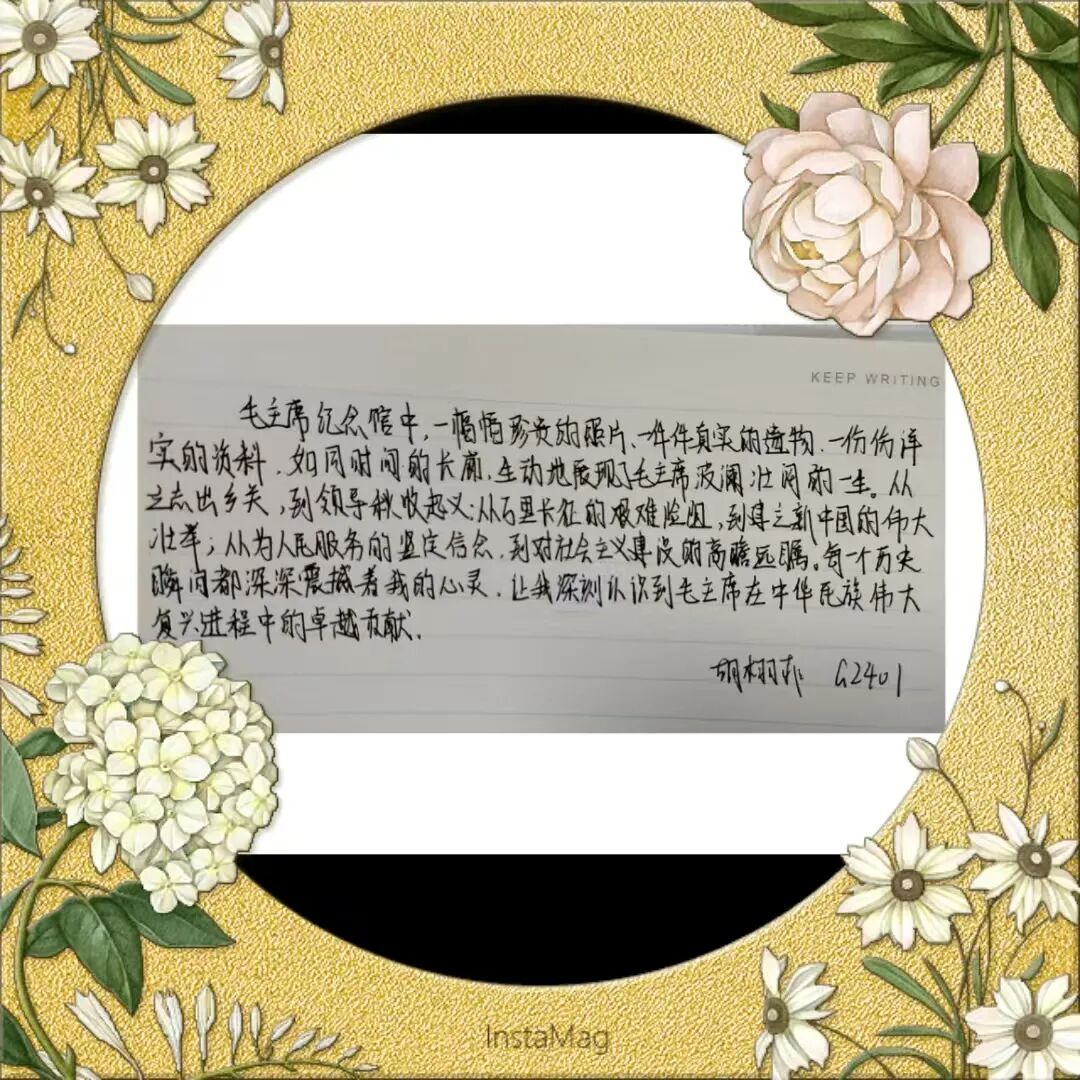 KEEP WRITING
毛主席纪念馆中，一幅幅珍贵的照片、一件件真实的遗物、一份份详
实的资料，如同时间的长廊，生动地展现了毛主席波澜壮阔的一生。从
立志出乡关，到领导秋收起义；从万里长征的艰难险阻，到建立新中国的伟大
壮举；从为人民服务的坚定信念，到对社会主义建设的高瞻远瞩。每一个历史
瞬间都深深震撼着我的心灵，让我深刻认识到毛主席在中华民族伟大
复兴进程中的卓越贡献。
胡栩菲 G2401
InstaMag